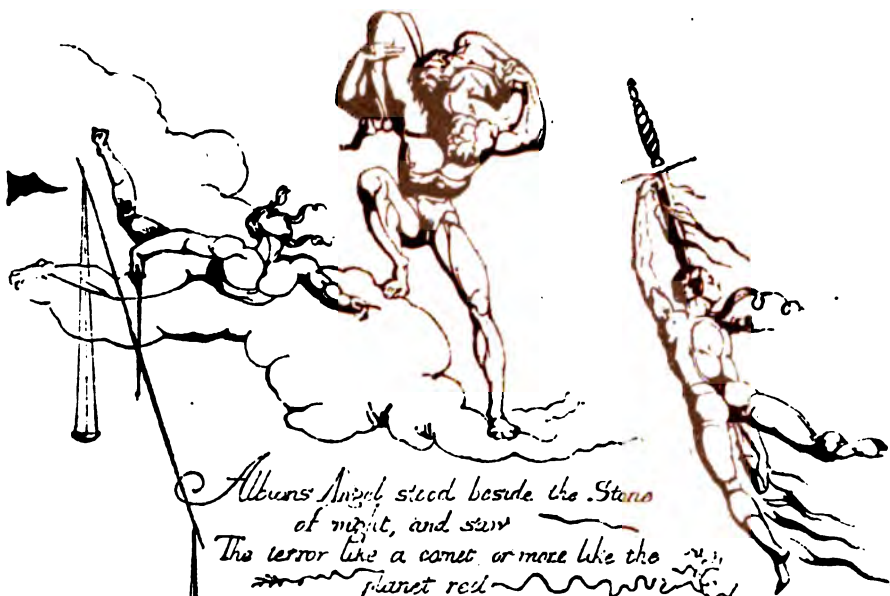 Albions Angel stood beside the Stone
of night, and saw
The terror like a comet, or more like the
planet red